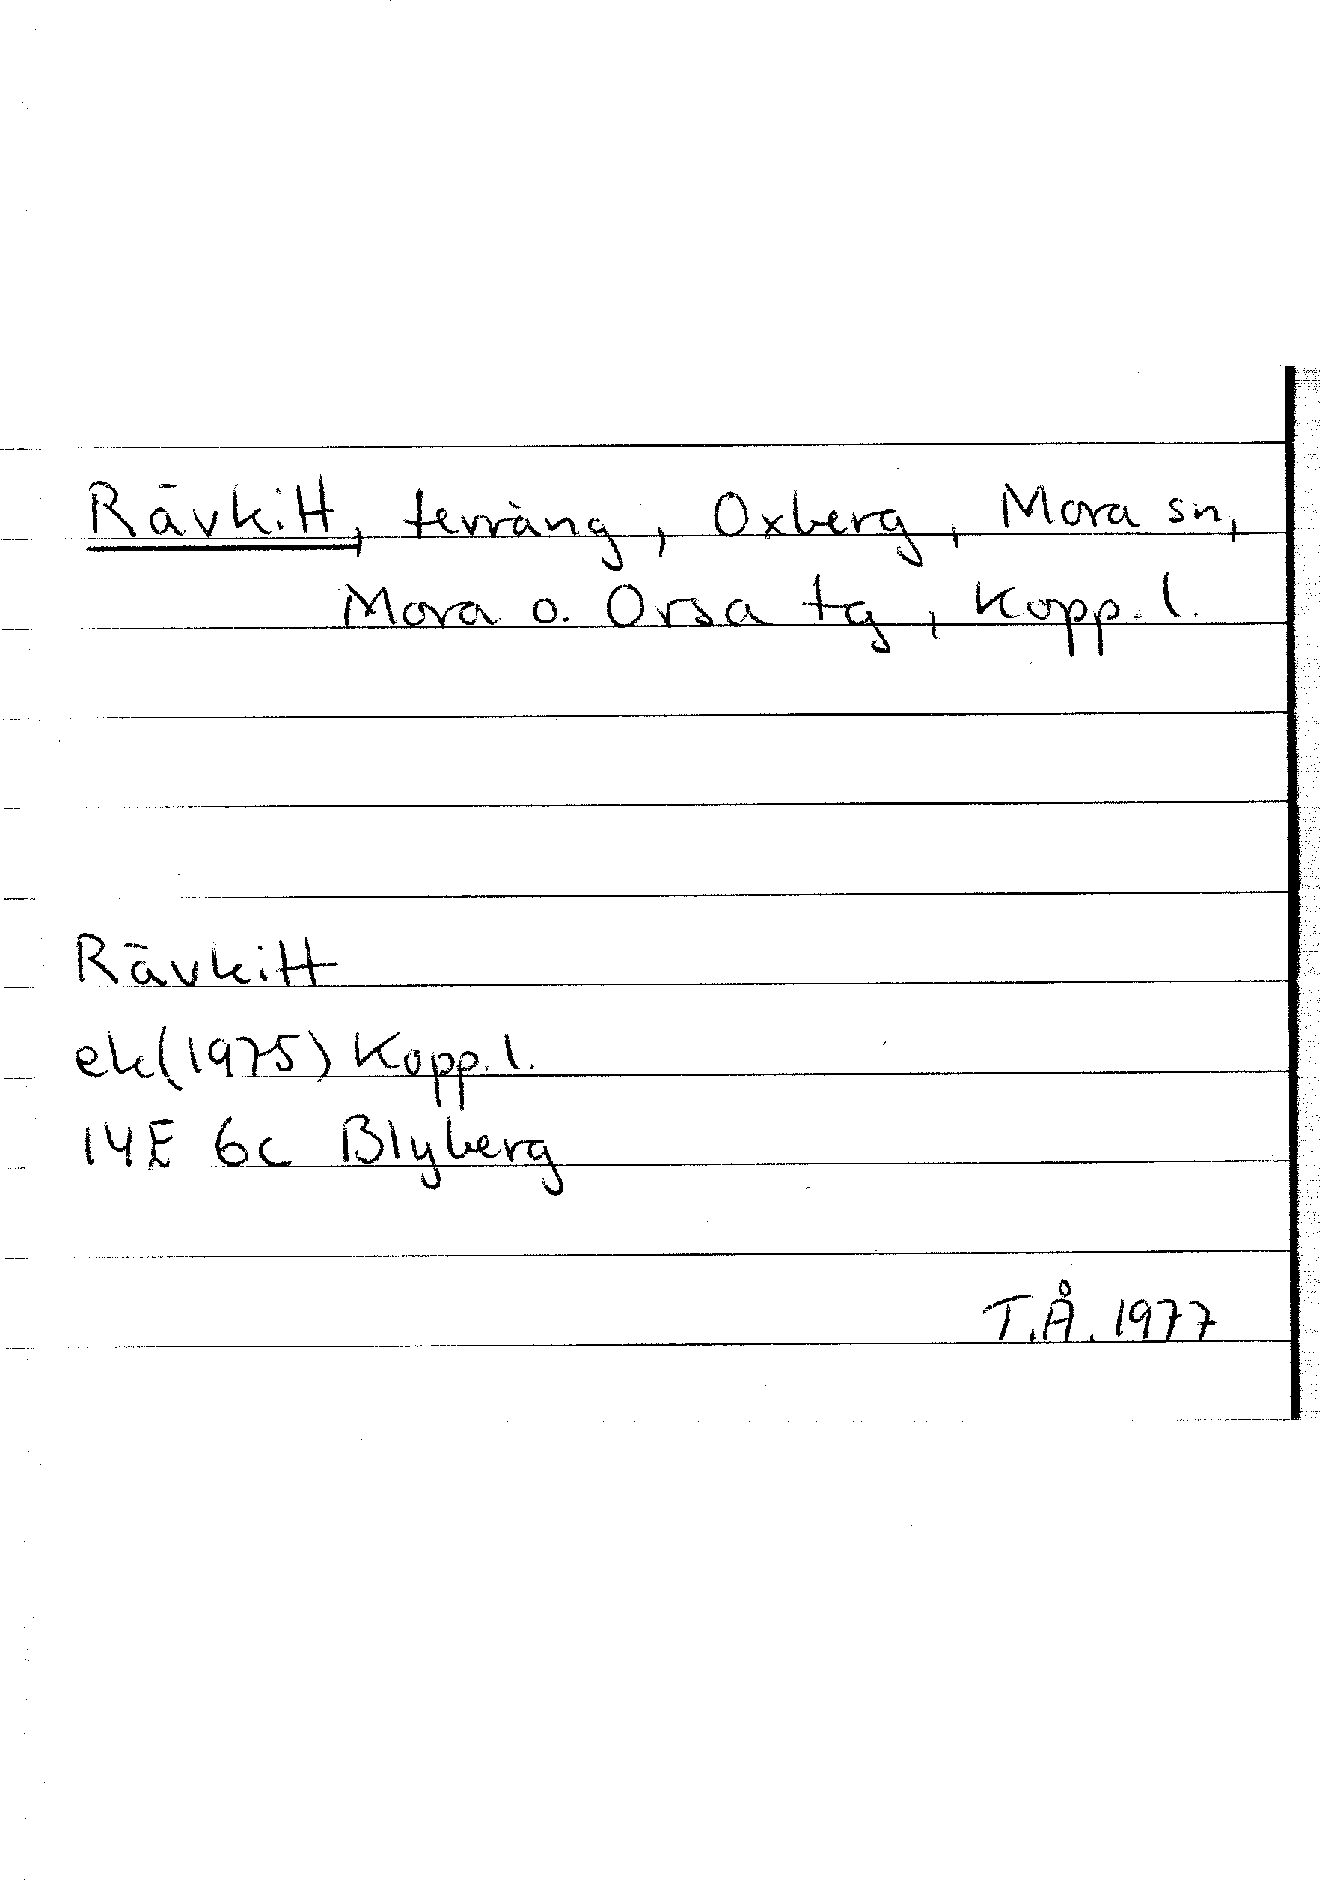 Rävkitt, terräng, Oxberg, Mora sn,
Mora o. Orsa tg, Kopp. l.
Rävkitt
ek(1975) Kopp. l.
14E 6c Blyberg
T.Å. 1977